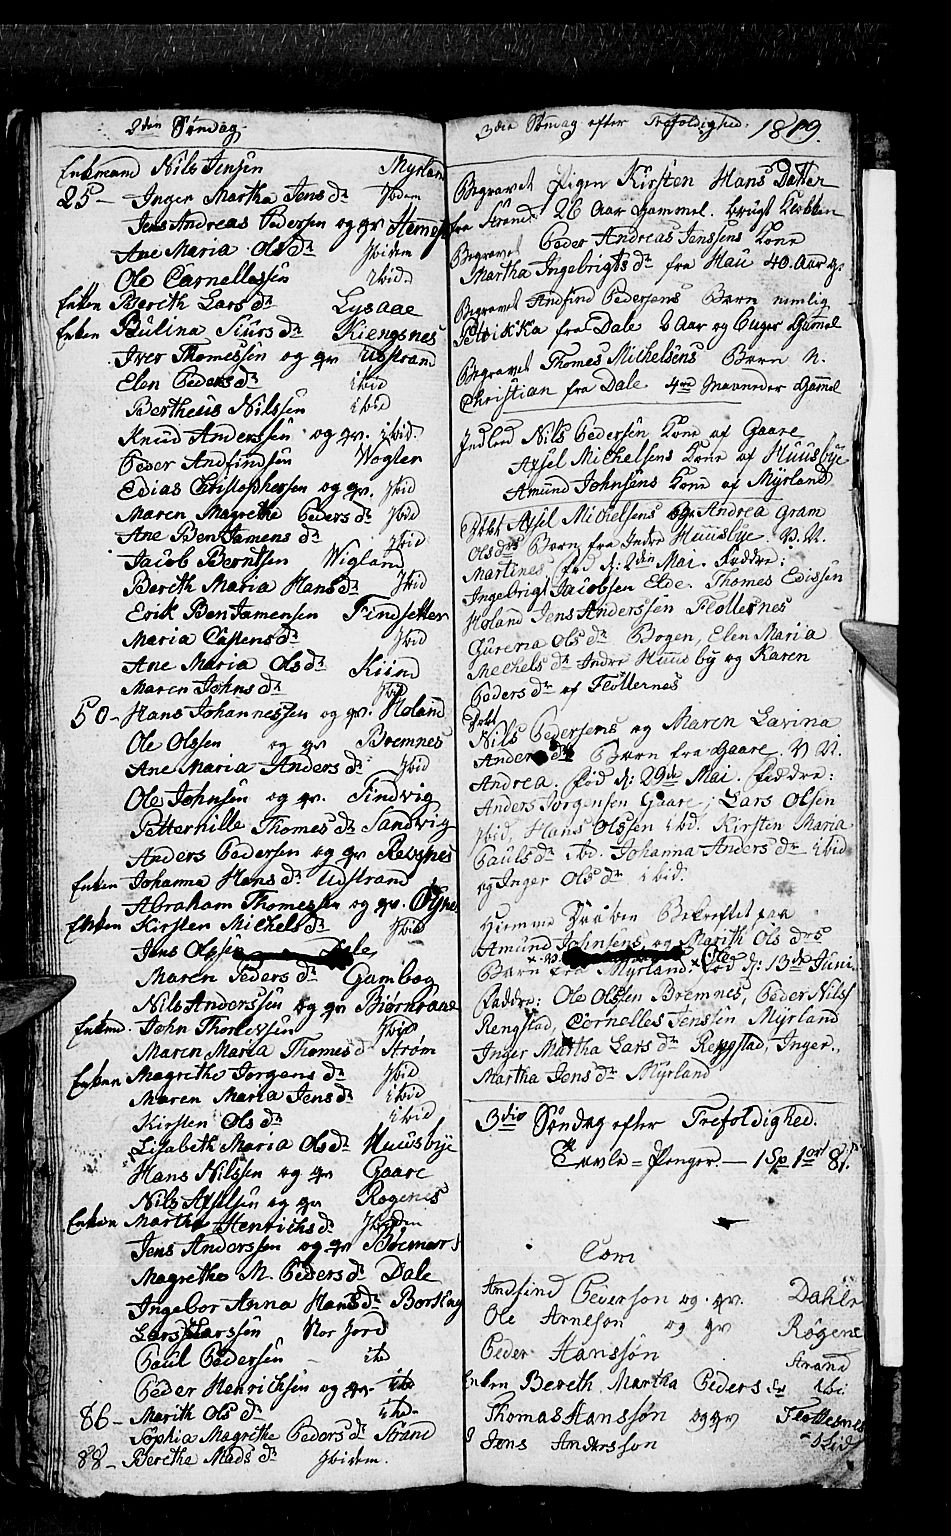 2den Søndag
Enkemand Nils Jensen Myrland
25 - Inger Martha Jens dr Ibidem
Jens Andreas Pedersen og qv
Ane Maria Ols dr Ibidem
Ole Cornellessen Ibid
Enken Bereth Lars dr Lysaae
Enken Paulina Siurs dr Kiengsnes
Iver Thomessen og qv Udstrand
Elen Peders dr ibid
Bertheus Nilssen ibid
Knud Anderssen og qv. ibid.
Peder Andfindsen Wogler
Edias Christophersen og qv. Ibid
Maren Magrethe Peders dr Ibid
Ane Ben Jamens dr Ibid
Jacob Berntsen Wigland
Bereth Maria Hans dr Ibid
Erik Ben Jamensen Findsetter
Maria Castens dr Ibid
Ane Maria Ols dr Kiind
Maren Johns dr Ibid
50 - Hans Johannessen og qv. Høland
Ole Olssen og qv Bremnes
Ane Maria Anders dr Ibid
Ole Johnsen og qv. Findvig
Petternille Thomes dr Sandvig
Anders Pedersen og qv Revsnes
Enken Johanna Hans dr Udstrand
Abraham Thomessen og qv.
Enken Kirsten Michels dr Ibid
Jens Olssen Dale
Maren Peders dr Gambog
Nils Anderssen og qv Biørnraae
Enkemd. John Thorlevsen Ibid
Maren Maria Thomes d Strøm
Enken Magrethe Jørgens dr Ibid
Maren Maria Jens dr ibid
Kirsten Ols dr ibid
Lisabeth Maria Ols dr Huusbye
Hans Nilssen og qv Gaare
Nils Axelsen og qv Røgenes
Enken Martha Henrichs dr Ibidem
Jens Anderssen og qv
Magrethe M. Peders dr Dale
Ingebor Anna Hans dr
Lars Larssen Nor Jord
Paul Pedersen ibd
Peder Henrichsen og qv ibd
86 - Marith Ols dr ibd.
Sophia Magrethe Peders dr Strand
88 - Berethe Mads dr Ibidem.
3die Søndag efter Trefoldighed. 1819.
Begravet Pigen Kirsten Hans Datter
fra Strand 26 Aar Gammel. brugt Klokken
Begravet Peder Andreas Jenssens Kone
Martha Ingebrigts dr fra Hau 40 Aar g.
Begravet Andfind Pedersens Barn nemlig
fra Dale 2 Aar og Uger Gamel
Begravet Thomes Michelsens Barn N.
Christian fra Dale 4re Maaneder Gamel
Indled Nils Pedersen Kone af Gaare
Axsel Michelsens Kone af Huusbye
Amund Johnsens Kone af Myrland
Døbt Axsel Michelsens og Andrea Gram
Olsdrs Barn fra Indre Huusbye. N. N.
Martines fød d: 2den Mai. Faddre:
Ingebrigt Jacobsen Elde. Thomes Edissen
Høland Jens Anderssen Flotternes
Gurena Ols dr Bogen, Elen Maria
Mechels dr Indre Huusby og Karen
Peders dr af Flotternes
Døbt
Nils Pedersens og Maren Lavina
Anders dr Barn fra Gaare. N N.
Andrea. fød d: 29de Mai. Faddre:
Anders Jørgensen Gaare; Lars Olsen
Ibid, Hans Olssen ibd. Kirsten Maria
Pauls dr ibd. Johanna Anders dr ibid
og Inger Ols dr ibid.
Hiemme Daaben Bekreftet paa
Amund Johnsens og Marith Ols drs
Barn fra Myrland. × Ole. fød d: 13de Juni.
Faddre: Ole Olssen Bremnes, Peder Nilss
Rengstad, Cornelles Jenssen Myrland
Inger Martha Lars dr Rengstad, Inger
Martha Jens dr Myrland
3die Søndag efter Trefoldighed.
Tavle = Penger. — 1 Sp 1 ort 8 s.
Com
Andfind Pederson og qv. Dahle
Ole Arneson og qv Røgene
Peder Hansson Strand
Enken Bereth Martha Peders dr ibi
Thomas Hansson og qv Flottesnes
Jens Andersson ibid